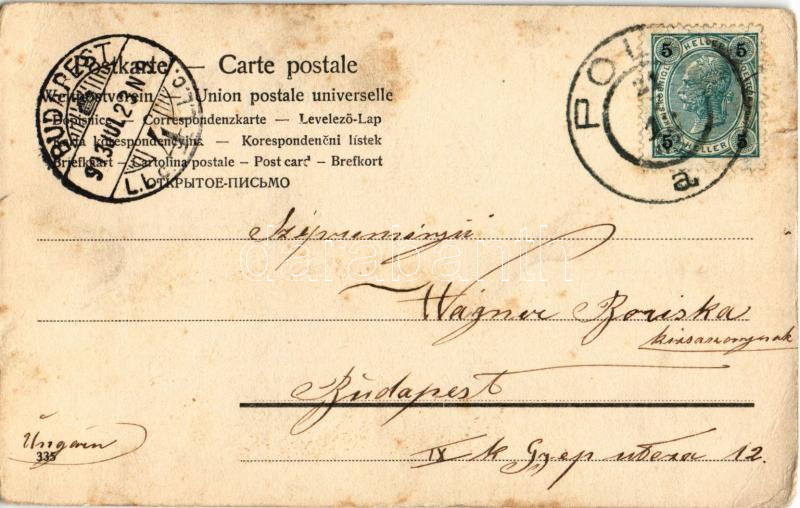 Postkarte — Carte postale
Weltpostverein — Union postale universelle
Dopisnice — Correspondenzkarte — Levelező-Lap
korespondencyjna — Korespondenčni listek
Briefkart — Cartolina postale — Post card — Brefkort
ОТКРЫТОЕ-ПИСЬМО
BUDAPEST
903 JUL 22 N
POL
a
5 HELLER 5
5 HELLER 5
Wágner Boriska
kisasszonynak
Budapest
IX k Gyep utcza 12.
Ungarn
335
darabanth